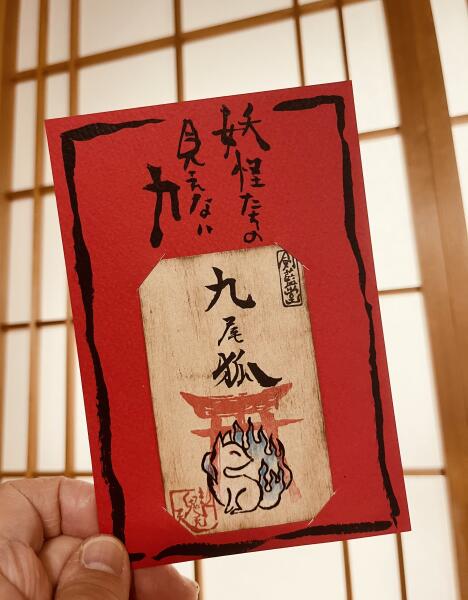 妖怪たちの
見えない
力
創藝堂
九尾狐